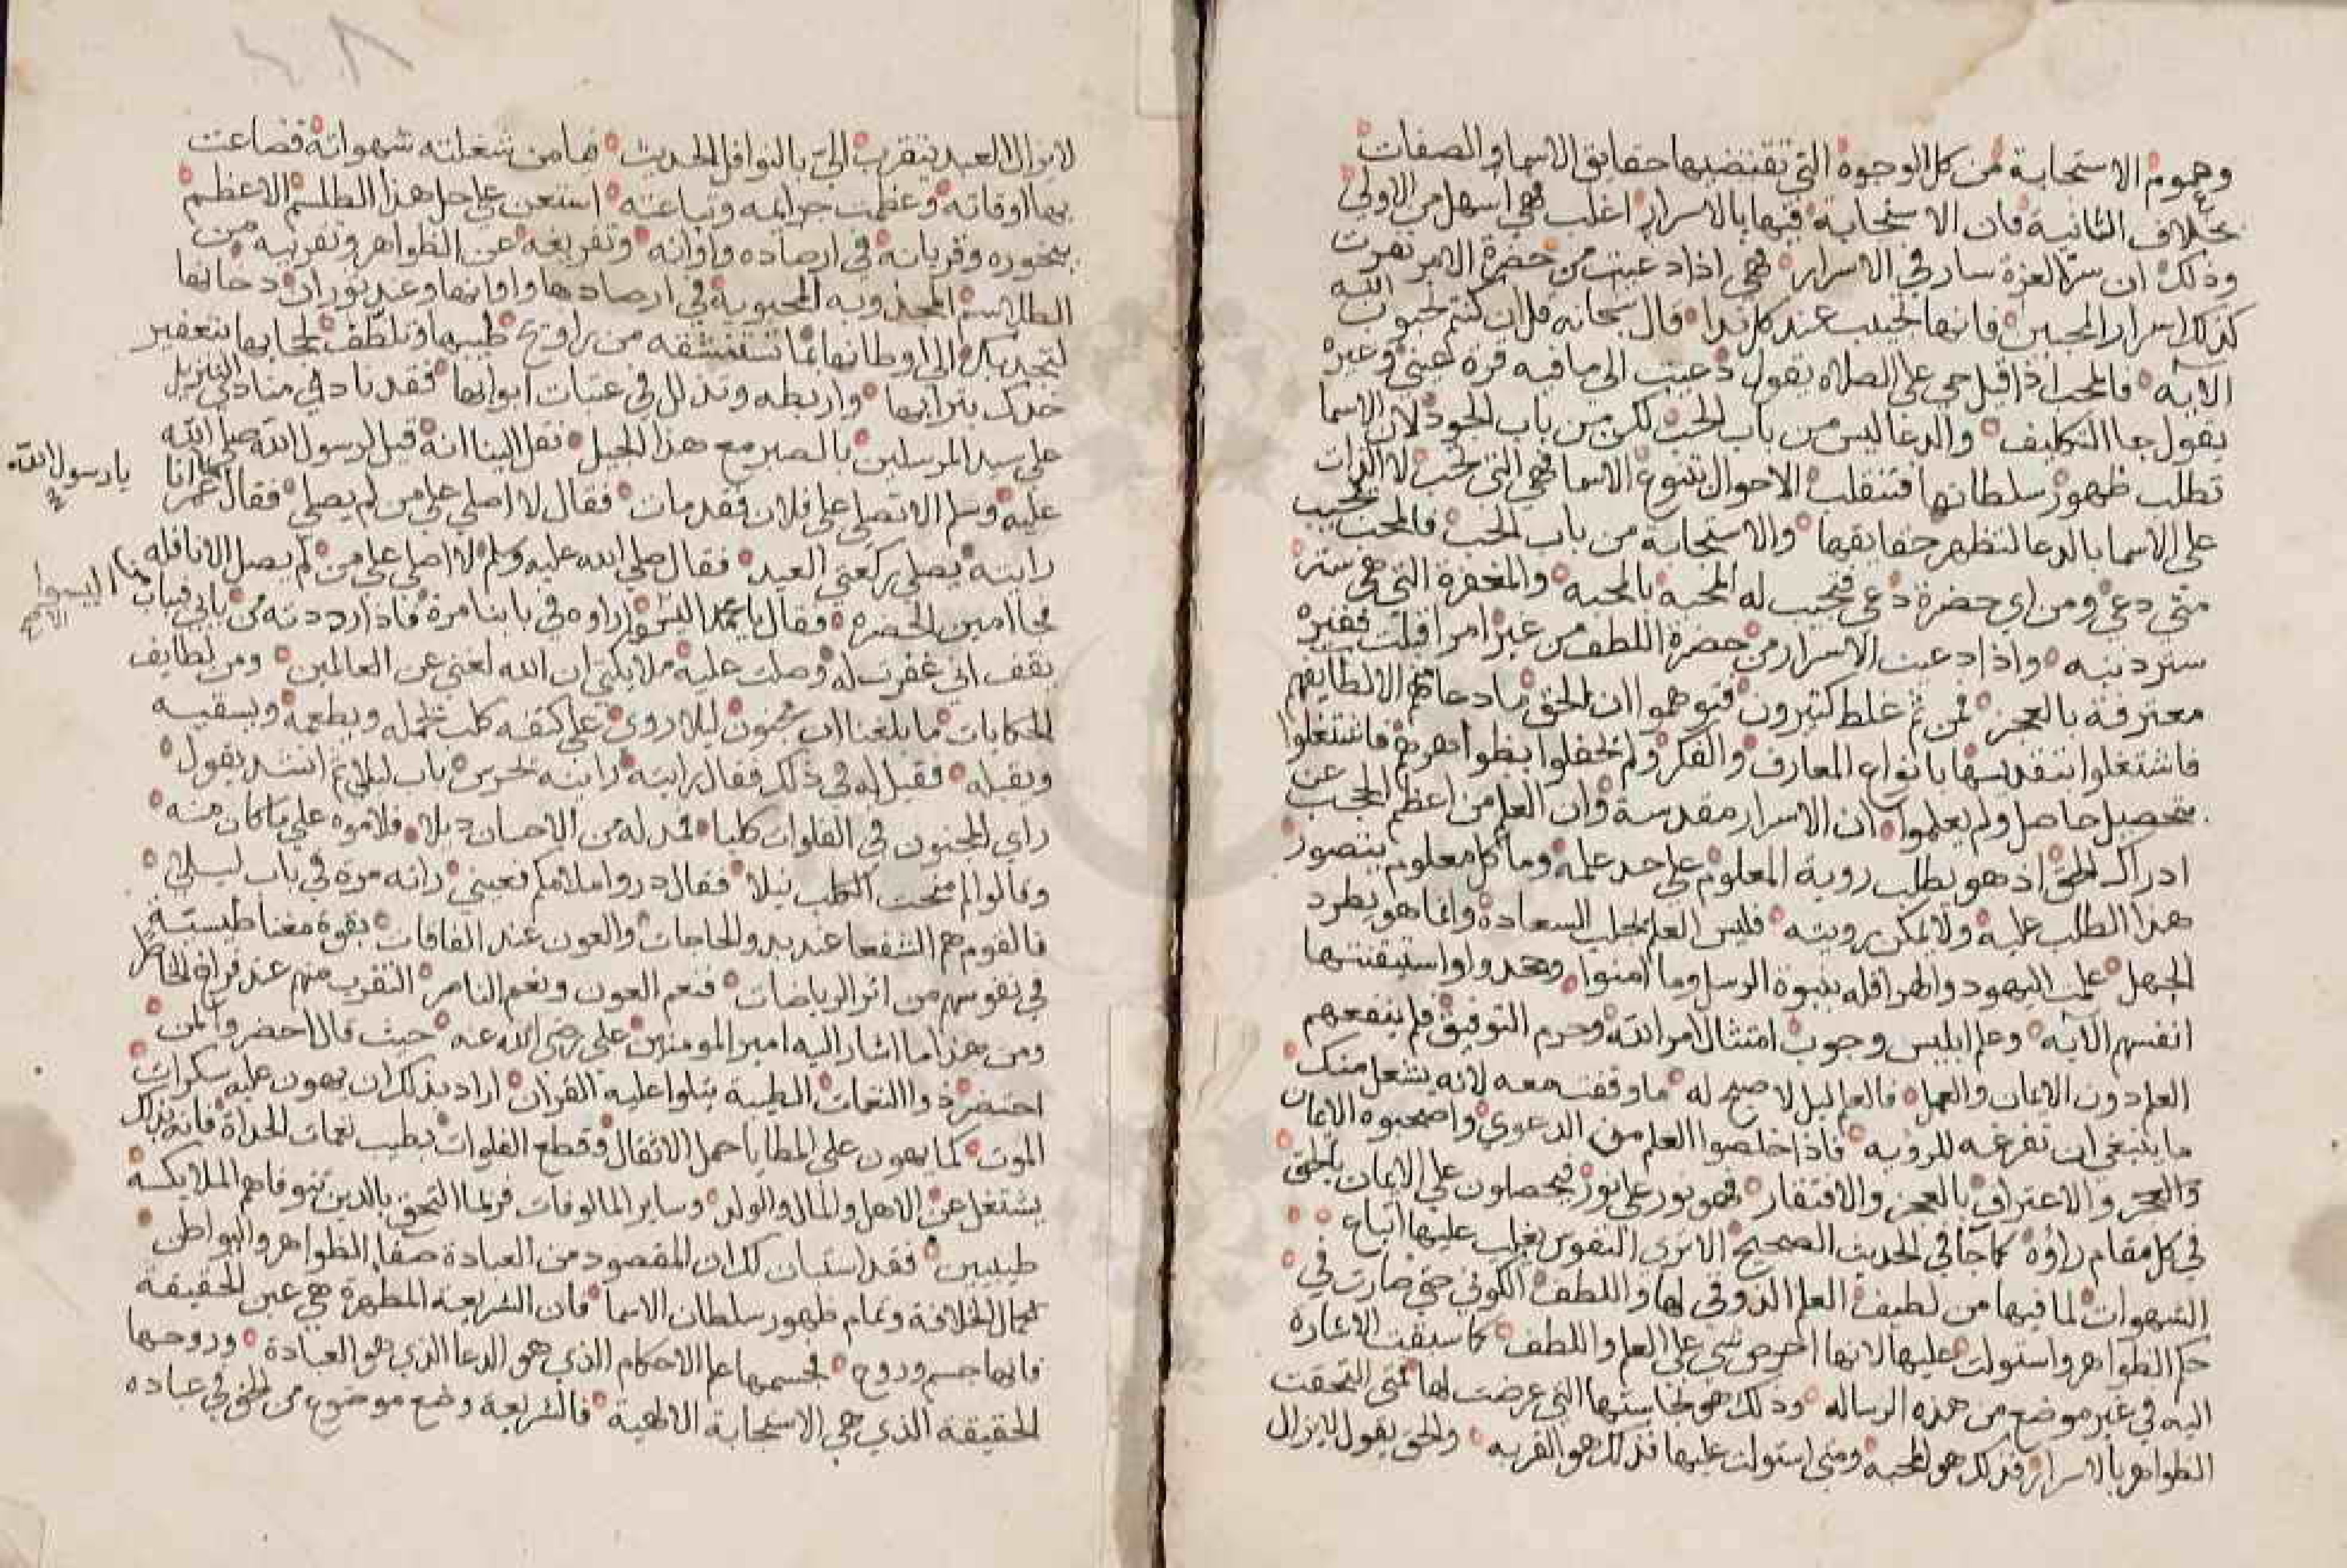 وعموم الاستجابة من كل الوجوه التي تقتضيها حقايق الاسما والصفات
بخلاف الثانية فان الاستجابة فيها بالاسرار اغلب فهي اسهل من الاولي
وذلك ان سر العزة سار في الاسرار فهي اذا دعيت من حضرة الامر نفرت
كذلك اسرار المحبين فانها تجيب عند كل ندا قال سبحانه قل ان كنتم تحبون الله
الايه فالمحب اذا قيل حي على الصلاه يقول دعيت الى ما فيه قرة عيني وغيره
يقول جا التكليف والدعا ليس من باب الحب لكن من باب الجود لان الاسما
تطلب ظهور سلطانها فتنقلب الاحوال بتنوع الاسما فهي التي تحب لا الذات
على الاسما بالدعا لتظهر حقايقها والاستجابة من باب الحب فالمحب يجيب
متى دعي ومن اي حضرة دعي فتجيب له المحبه بالمحبه والمغفرة التي هي ستر
ستر دنيه واذا دعيت الاسرار من حضرة اللطف من غير امر اقبلت فقيرة
معترفة بالعجز فمن ثم غلط كثيرون فتوهموا ان الحق ما دعاهم الا لطايفهم
فاشتغلوا بتقديسها بانواع المعارف والفكر ولم يحفلوا بظواهرهم فاشتغلوا
بتحصيل حاصل ولم يعلموا ان الاسرار مقدسة وان العلم من اعظم الحجب عن
ادراك الحق اذ هو يطلب روية المعلوم على حد علمه وما كل معلوم يتصور
هذا الطلب عليه ولا يمكن رويته فليس العلم يجلب السعادة وانما هو يطرد
الجهل علمت اليهود واظهر اقله بنبوة الرسل وما امنوا وجحدوا واستيقنتها
انفسهم الآيه وعلم ابليس وجوب امتثال امر الله وحرم التوفيق فلم ينفعهم
العلم دون الايمان والعمل فالعلم ليل لا صبح له ما وقفت معه لانه يشغل منك
ما ينبغي ان تفرغه للرويه فاذا خلصوا العلم من الدعوي واصحبوه الايمان
والعجز والاعتراف بالعجز والافتقار فهو نور على نور فيحصلون على الايمان بالحق
في كل مقام راؤه كما جآ في الحديث الصحيح الا ترى النفوس يغلب عليها اتباع
الشهوات لما فيها من لطيف العلم الذوقي لها واللطف الكوني حتى صارت في
حكم الظواهر واستولت عليها لانها احرص شي على العلم واللطف كما سبقت الاشارة
اليه في غير موضع من هذه الرساله وذلك هو نجاستها التي عرضت لها فمتى التحقت
الظواهر بالاسرار فذلك هو المحبه ومتى استولت عليها فذلك هو القربه والحق يقول لايزال
لايزال العبد يتقرب اليّ بالنوافل الحديث فيا من شغلته شهواته فضاعت
بها اوقاته وعظمت جرايمه وتباعته استعن على حل هذا الطلسم الاعظم
ببخوره وقربانه في ارصاده واوانه وتفريغه عن الظواهر وتقريبه من
الطلاسم المجذوبه المحبوبة في ارصادها واوانها وعند ثوران دخانها
لتجذبك الى اوطانها بما تستنشقه من روايح طيبها وتلطف لحجابها بتعفير
خدك بترابها واربطه وتذلل في عتبات ابوابها فقد نادى منادى التنزيل
على سيد المرسلين بالصبر مع هذا الجيل نقل الينا انه قيل لرسول الله صلى الله
عليه وسلم الا تصلي على فلان فقد مات فقال لا اصلي على من لم يصلي فقال عمر انا
رايته يصلي ركعتي العيد فقال صلى الله عليه وسلم لا اصلي على من لم يصل الا نافله
فجا امين الحضرة فقال يا محمد اليس اراوه في بابنا مرة فاذا رددته من بابي فبباب من
يقف اني غفرت له وصلت عليه ملايكتي ان الله لغني عن العالمين ومن لطايف
الحكايات ما بلغنا ان مجنون ليلا روي على كتفه كلب يحمله ويطعمه ويسقيه
ويقبله فقيل له في ذلك فقال رايته رايته يحرس باب ليلي ثم انشد يقول
راي المجنون في الفلوات كلبا فمد له من الاحسان ديلا فلاموه على ما كان منه
وقالوا لم منحت الكلب نيلا فقال دروا ملامكم فعيني راته مرة في باب ليلى
فالقوم هم الشفعا عند بدو الحاجات والعون عند الفاقات بقوة مغناطيسته
في نفوسهم من اثر الرياضات فنعم العون ونعم الناصر التقرب منهم عند فراق الخاطر
ومن هذا ما اشار اليه امير المومنين على رضي الله عنه حيث قال احضروا لمن
احتضر ذوا النغمات الطيبة يتلوا عليه القران اراد بذلك ان يهون عليه سكرات
الموت كما يهون على المطايا حمل الاثقال وقطع الفلوات بطيب نغمات الحداة فانه بذلك
يشتغل عن الاهل والمال والولد وساير المالوفات فربما التحق بالدين تتوفاهم الملايكة
طيبين فقد استبان لك ان المقصود من العبادة صفا الظواهر والبواطن
لكمال الخلافة وتمام ظهور سلطان الاسما فان الشريعة المطهرة هي عين الحقيقة
فانها جسم وروح فجسمها علم الاحكام الذي هو الدعا الذي هو العبادة وروحها
الحقيقة الذي هي الاستجابة الالهية فالشريعة وضع موضوع من الحق في عباده
يا رسول الله
اليسوا